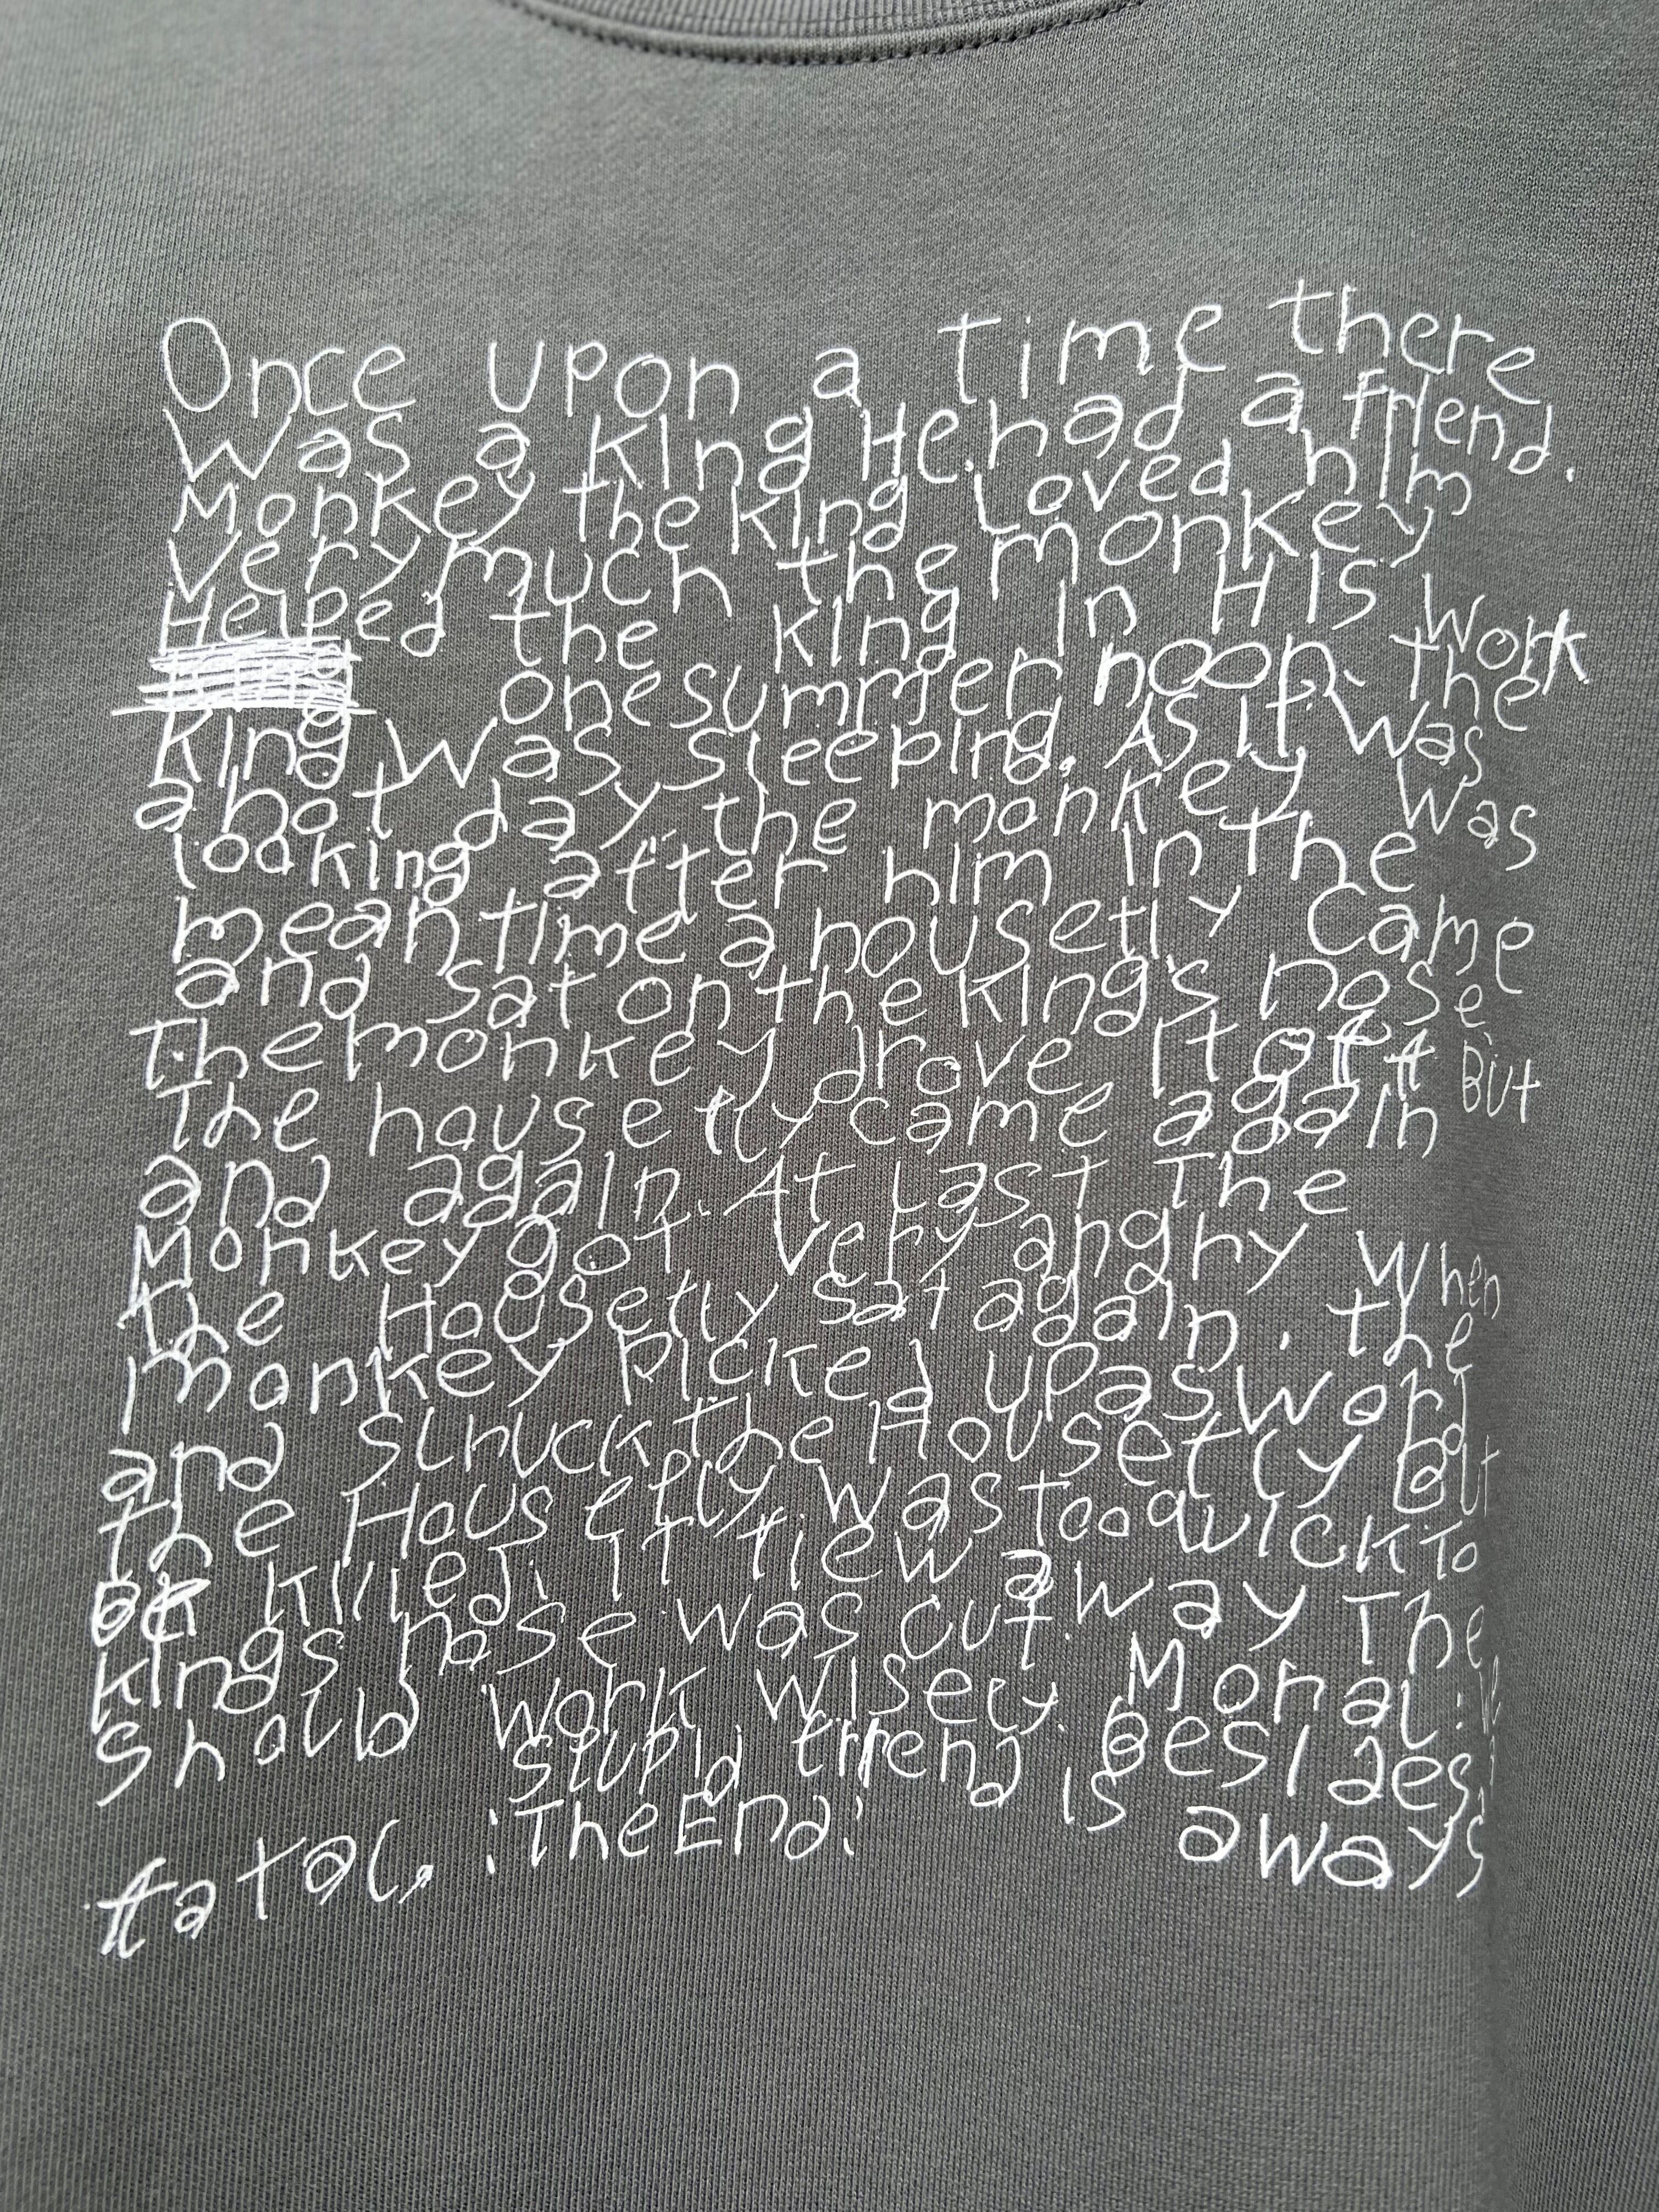 Once upon a time there
was a King He had a friend.
Monkey the King Loved him
Very much the monkey
Helped the King In HIS Work
one summer noon. The
King Was Sleeping. As it Was
a hot day the monkey Was
looking after him In the
meantime a housefly Came
and Sat on the King's nose.
The monkey drove It off But
The housefly came again
and again. At Last The
Monkey got Very angry When
the Housefly Sat again. the
monkey Picked up a sword
and Struck the Housefly But
The Housefly was too quick To
BE Killed. IT flew away The
Kings nose was cut. Moral: We
Should Work Wisely. Besides a
Stupid friend is aways
fatal. :The End: